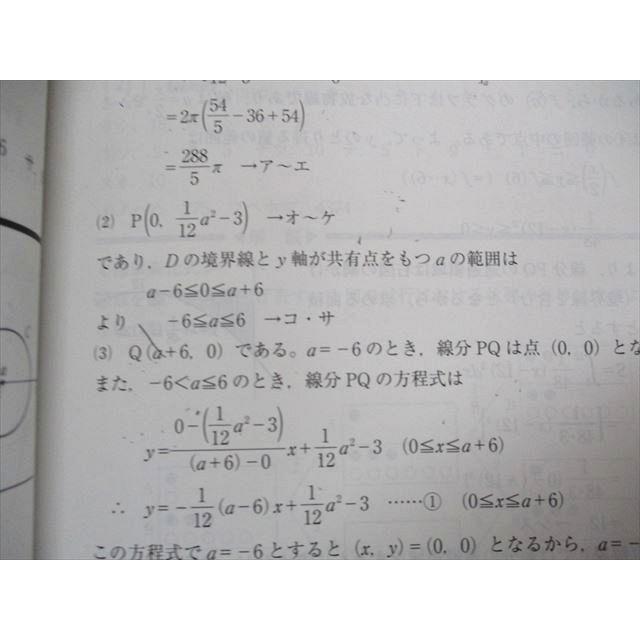 =2π(54/5-36+54)
=288/5 π →ア～エ
(2) P(0, 1/12 a²-3) →オ～ケ
であり，Dの境界線とy軸が共有点をもつaの範囲は
a-6≦0≦a+6
より -6≦a≦6 →コ・サ
(3) Q(a+6, 0) である。a=-6のとき，線分PQは点 (0, 0) とな
また，-6<a≦6のとき，線分PQの方程式は
y=0-(1/12 a²-3)/(a+6)-0 x+1/12 a²-3 (0≦x≦a+6)
∴ y=-1/12(a-6)x+1/12 a²-3 ……① (0≦x≦a+6)
この方程式でa=-6とすると (x, y)=(0, 0) となるから，a=-